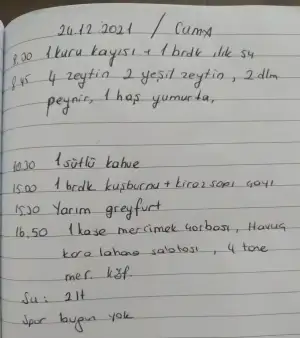 24.12.2021 / Cuma
8.00 1 kuru kayısı + 1 brdk ılık su
8.45 4 zeytin 2 yeşil zeytin, 2 dlm
peynir, 1 haş yumurta,
10.30 1 sütlü kahve
15.00 1 brdk kuşburnu + kiraz sapı çayı
15.30 Yarım greyfurt
16.50 1 kase mercimek çorbası, Havuç
kara lahana salatası, 4 tane
mer. köf.
Su: 2 lt
Spor bugün yok